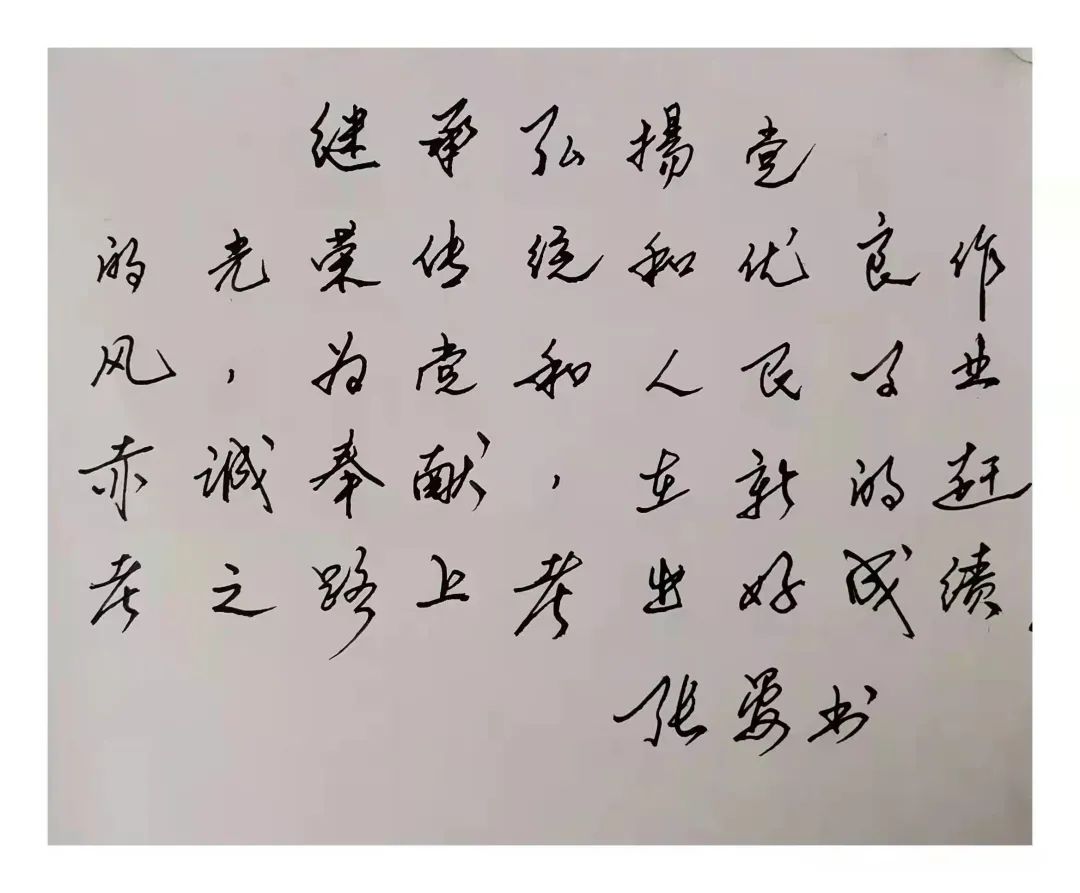 继承弘揚党
的光荣传统和优良作
风，为党和人民事业
赤诚奉献，在新的赶
考之路上考出好成绩.
张 书